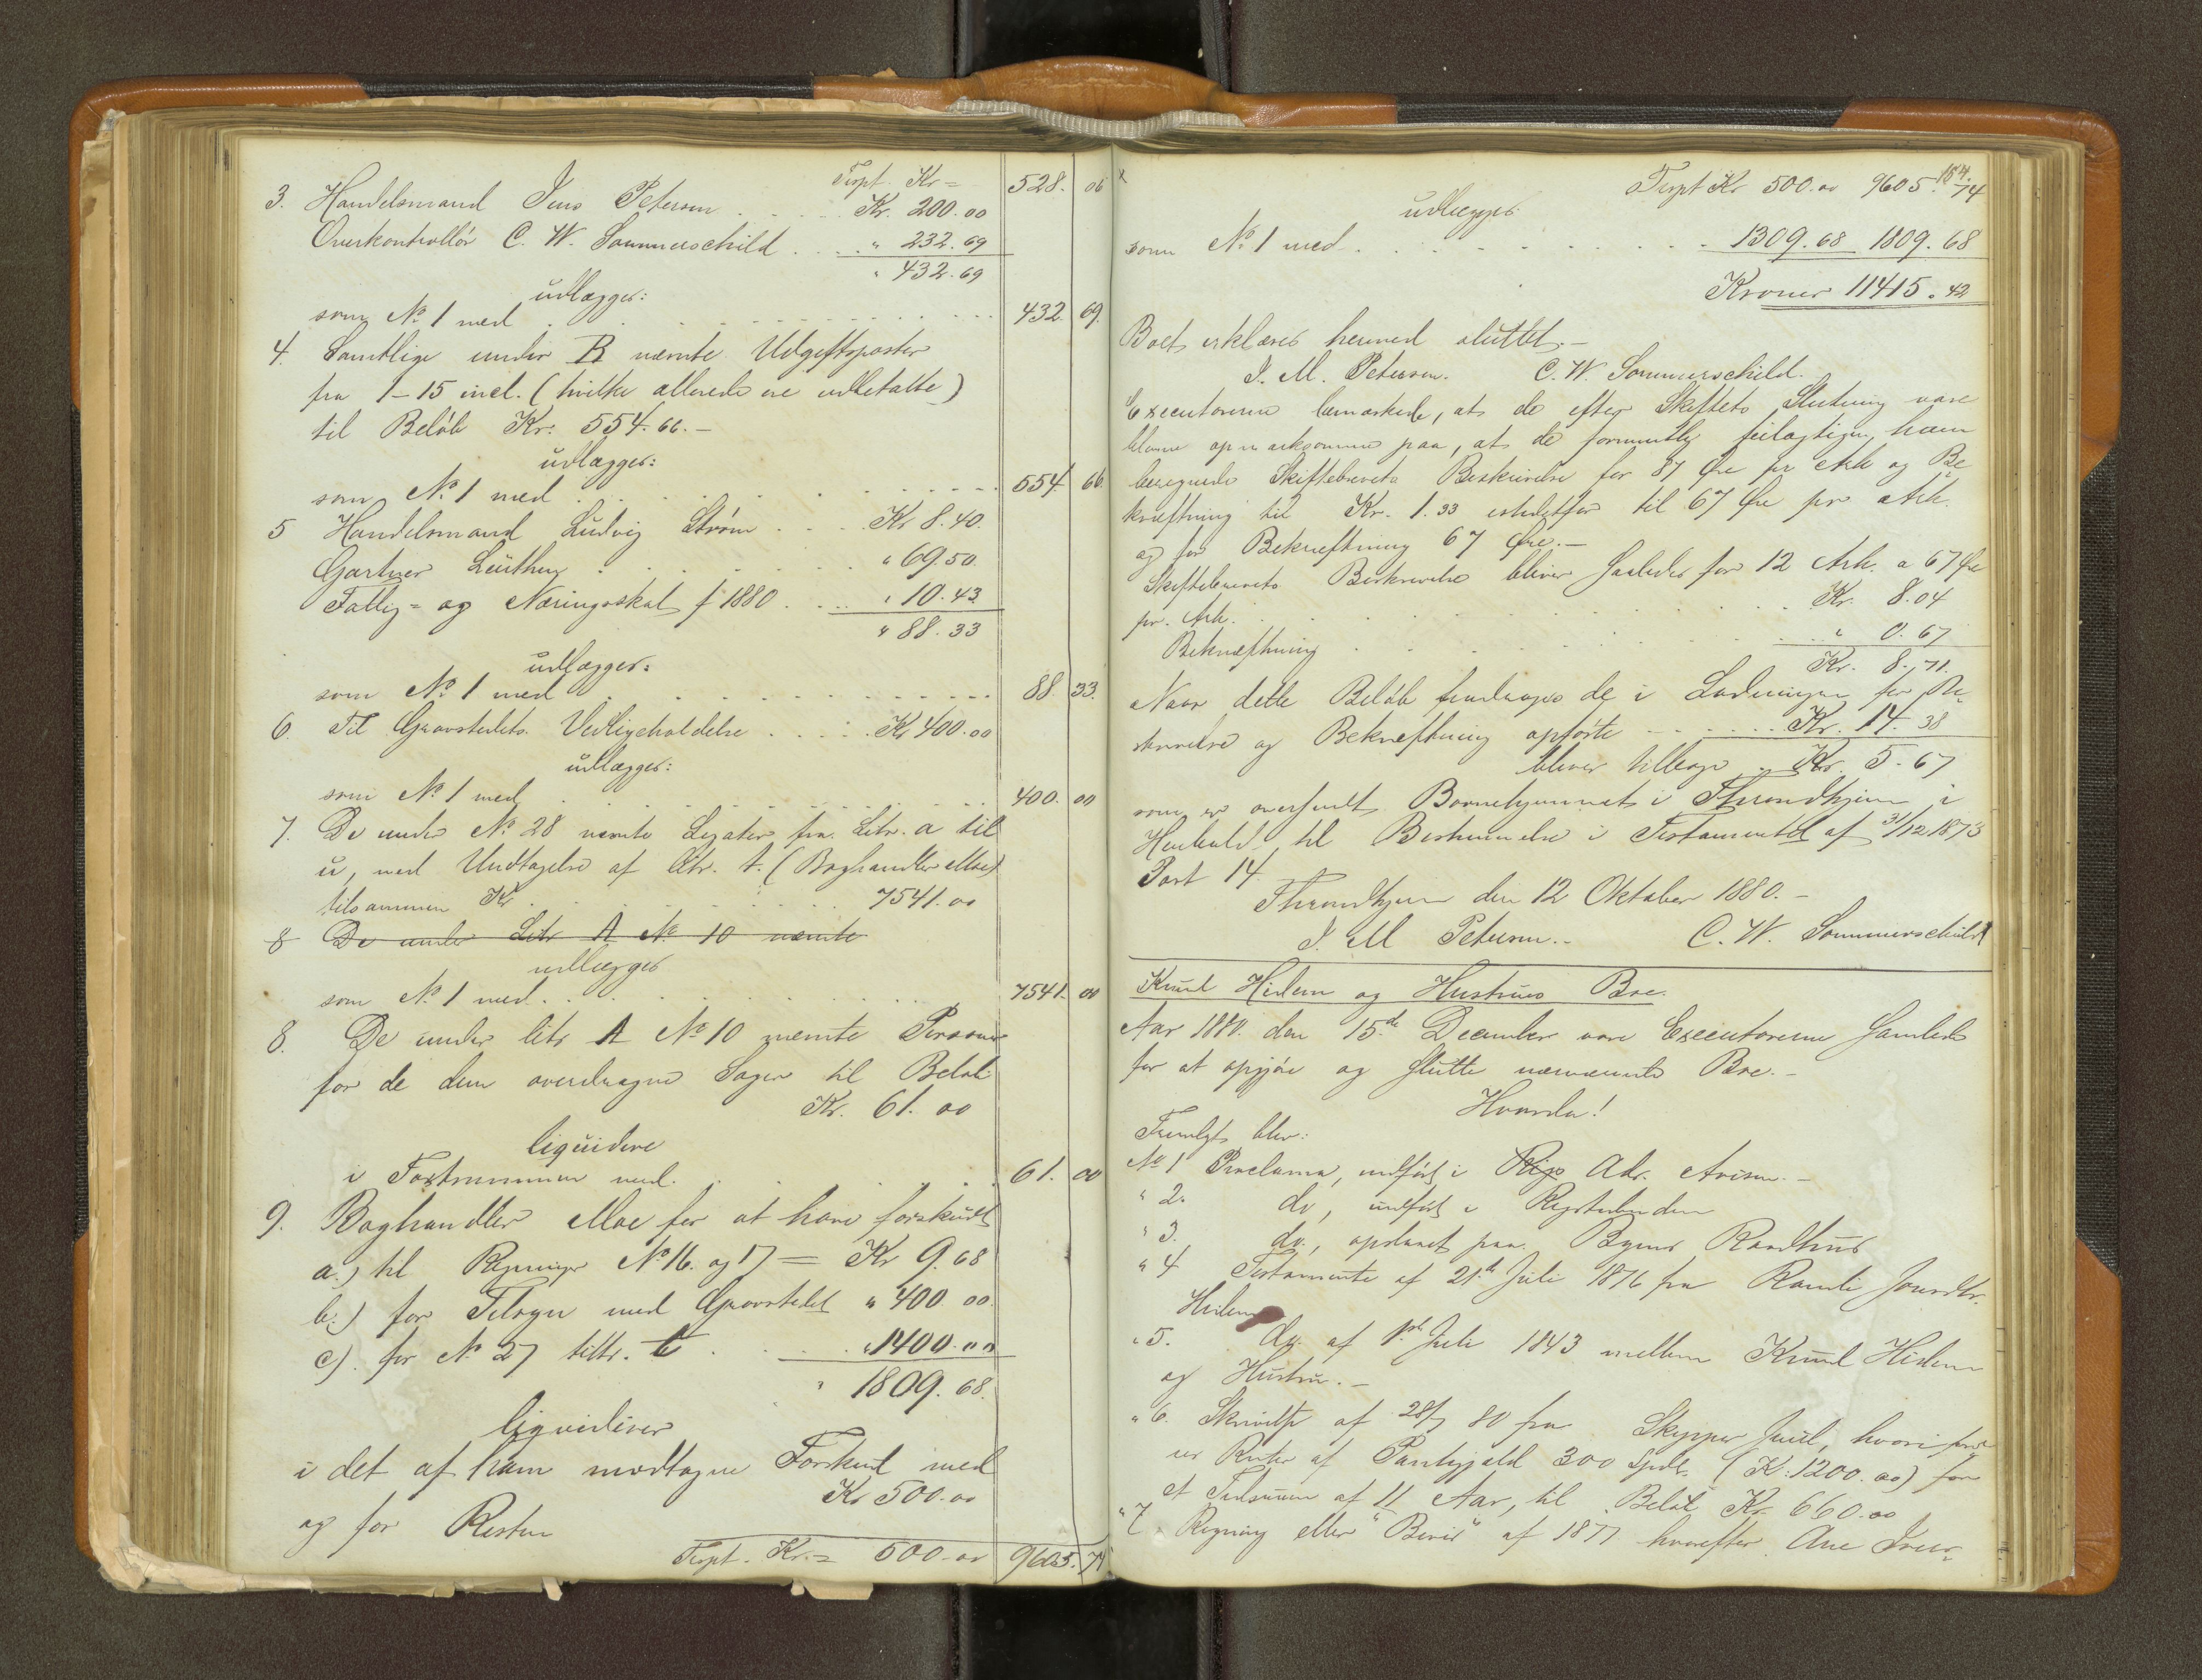 Trpt. Kr = 528. 06
3. Handelsmand Jens Petersen . . . . Kr. 200.00
Overkontrollör C. W. Sommerschild . . . " 232.69
" 432.69
udlægges:
som No 1 med . . . 432. 69.
4. Samtlige under B nævnte Udgiftsposter
fra 1-15 incl. (hvilke allerede ere udbetalte)
til Beløb Kr. 554.66.-
udlægges:
som No 1 med . . . 554 66.
5 Handelsmand Ludvig Ström . . . Kr 8.40.
Gartner Leüthen . . . " 69.50.
Fattig= og Næringsskat f 1880 . . . " 10.43
" 88.33
udlægges:
som No 1 med . . . 88. 33.
6. Til Gravstedets Vedligeholdelse . . . Kr 400.00
udlægges:
som No 1 med . . . 400. 00
7. De under No 28 nævnte Legater fra Litr. a til
u, med Undtagelse af litr. t. (Boghandler Moe)
tilsammen Kr . . . 7541.00
8 De under Litr A No 10 nævnte
udlægges
som No 1 med . . . 7541. 00
8. De under litr A No 10 nævnte Personer
for de dem overdragne Sager til Beløb
Kr. 61. 00
liquidere
i Fortrummene med . . . 61. 00
9. Boghandler Moe for at have forskudt
a.) til Regninger No 16. og 17 = Kr 9.68
b.) for Tilsyn med Gravstedet " 400 00.
c). for No 27 littr. t . . . " 1400.00
" 1809.68.
liqviderer
i det af ham modtagne Forskud med
Kr 500.00
og for Resten
Trpt. Kr. = 500.00 9605. 74
154.
Trpt Kr 500.00 9605.74
udlægges
som No 1 med . . . 1309.68 1809.68
Kroner 11415.42
Boet erklæres hermed sluttet.-
J. M. Petersen. C. W. Sommerschild.
Executorerne bemærkede, at de efter Skiftets Slutning vare
blevne opmærksomme paa, at de formentlig feilagtigen have
beregnede Skiftebrevets Beskrivelse for 87 Øre pr Ark og Be=
kræftning til Kr. 1.33 istedetfor til 67 Øre pr Ark.
og for Bekræftning 67 Øre.-
Skiftebrevets Beskrivelse bliver saaledes for 12 Ark. a 67 Øre
pr. Ark. . . . Kr. 8.04
Bekræftning . . . " 0.67
Kr. 8.71.
Naar dette Beløb fradrages de i Ladningen for Be=
skrivelse og Bekræftning opførte . . . Kr. 14.38
bliver tilbage . Kr. 5.67
som er oversendt Børnehjemmet i Throndhjem i
Henhold til Bestemmelse i Testamentet af 31/12 1873
Post 14.
Throndhjem den 12 Oktober 1880.-
J. M Petersen.- C. W. Sommerschild
Knud Hidem og Hustrues Boe.
Aar 1880. den 15de December vare Executorerne samlede
for at opgjøre og slutte nævnevnte Boe.-
Hvorda!
Fremlagt blev:
No 1 Proclama, indført i Rigs Adr. Avisen.-
" 2. do, indført i Rigstidenden
" 3. do., opslaaet paa Byens Raadhus
" 4 Testamente af 21de Juli 1876 fra Randi Jonsdtr.
Hidem
" 5. do. af 1ste Juli 1843 mellem Knud Hidem
og Hustru.-
" 6. Skrivelse af 28/7 80 fra Skipper Juul, hvori
er Renter af Pantegjæld 300 Spdlr. (Kr: 1200.00) for
et Tidsrum af 11 Aar, til Beløb Kr. 660.00
" 7. Regning eller "Beviis" af 1877 hvorefter Ane Iver=